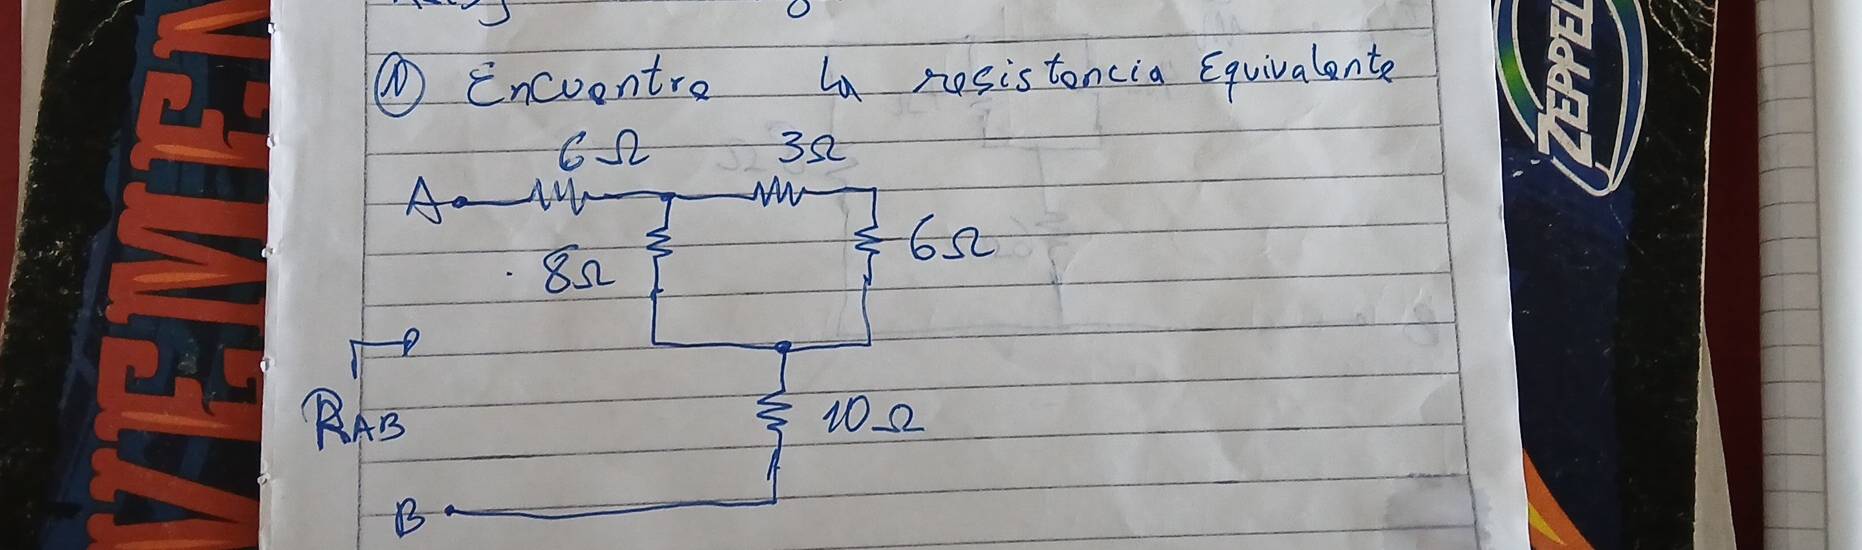 ① Encuentre la resistencia Equivalente
6Ω 3Ω
A
8Ω 6Ω
RAB
10Ω
B
ZEPPEL